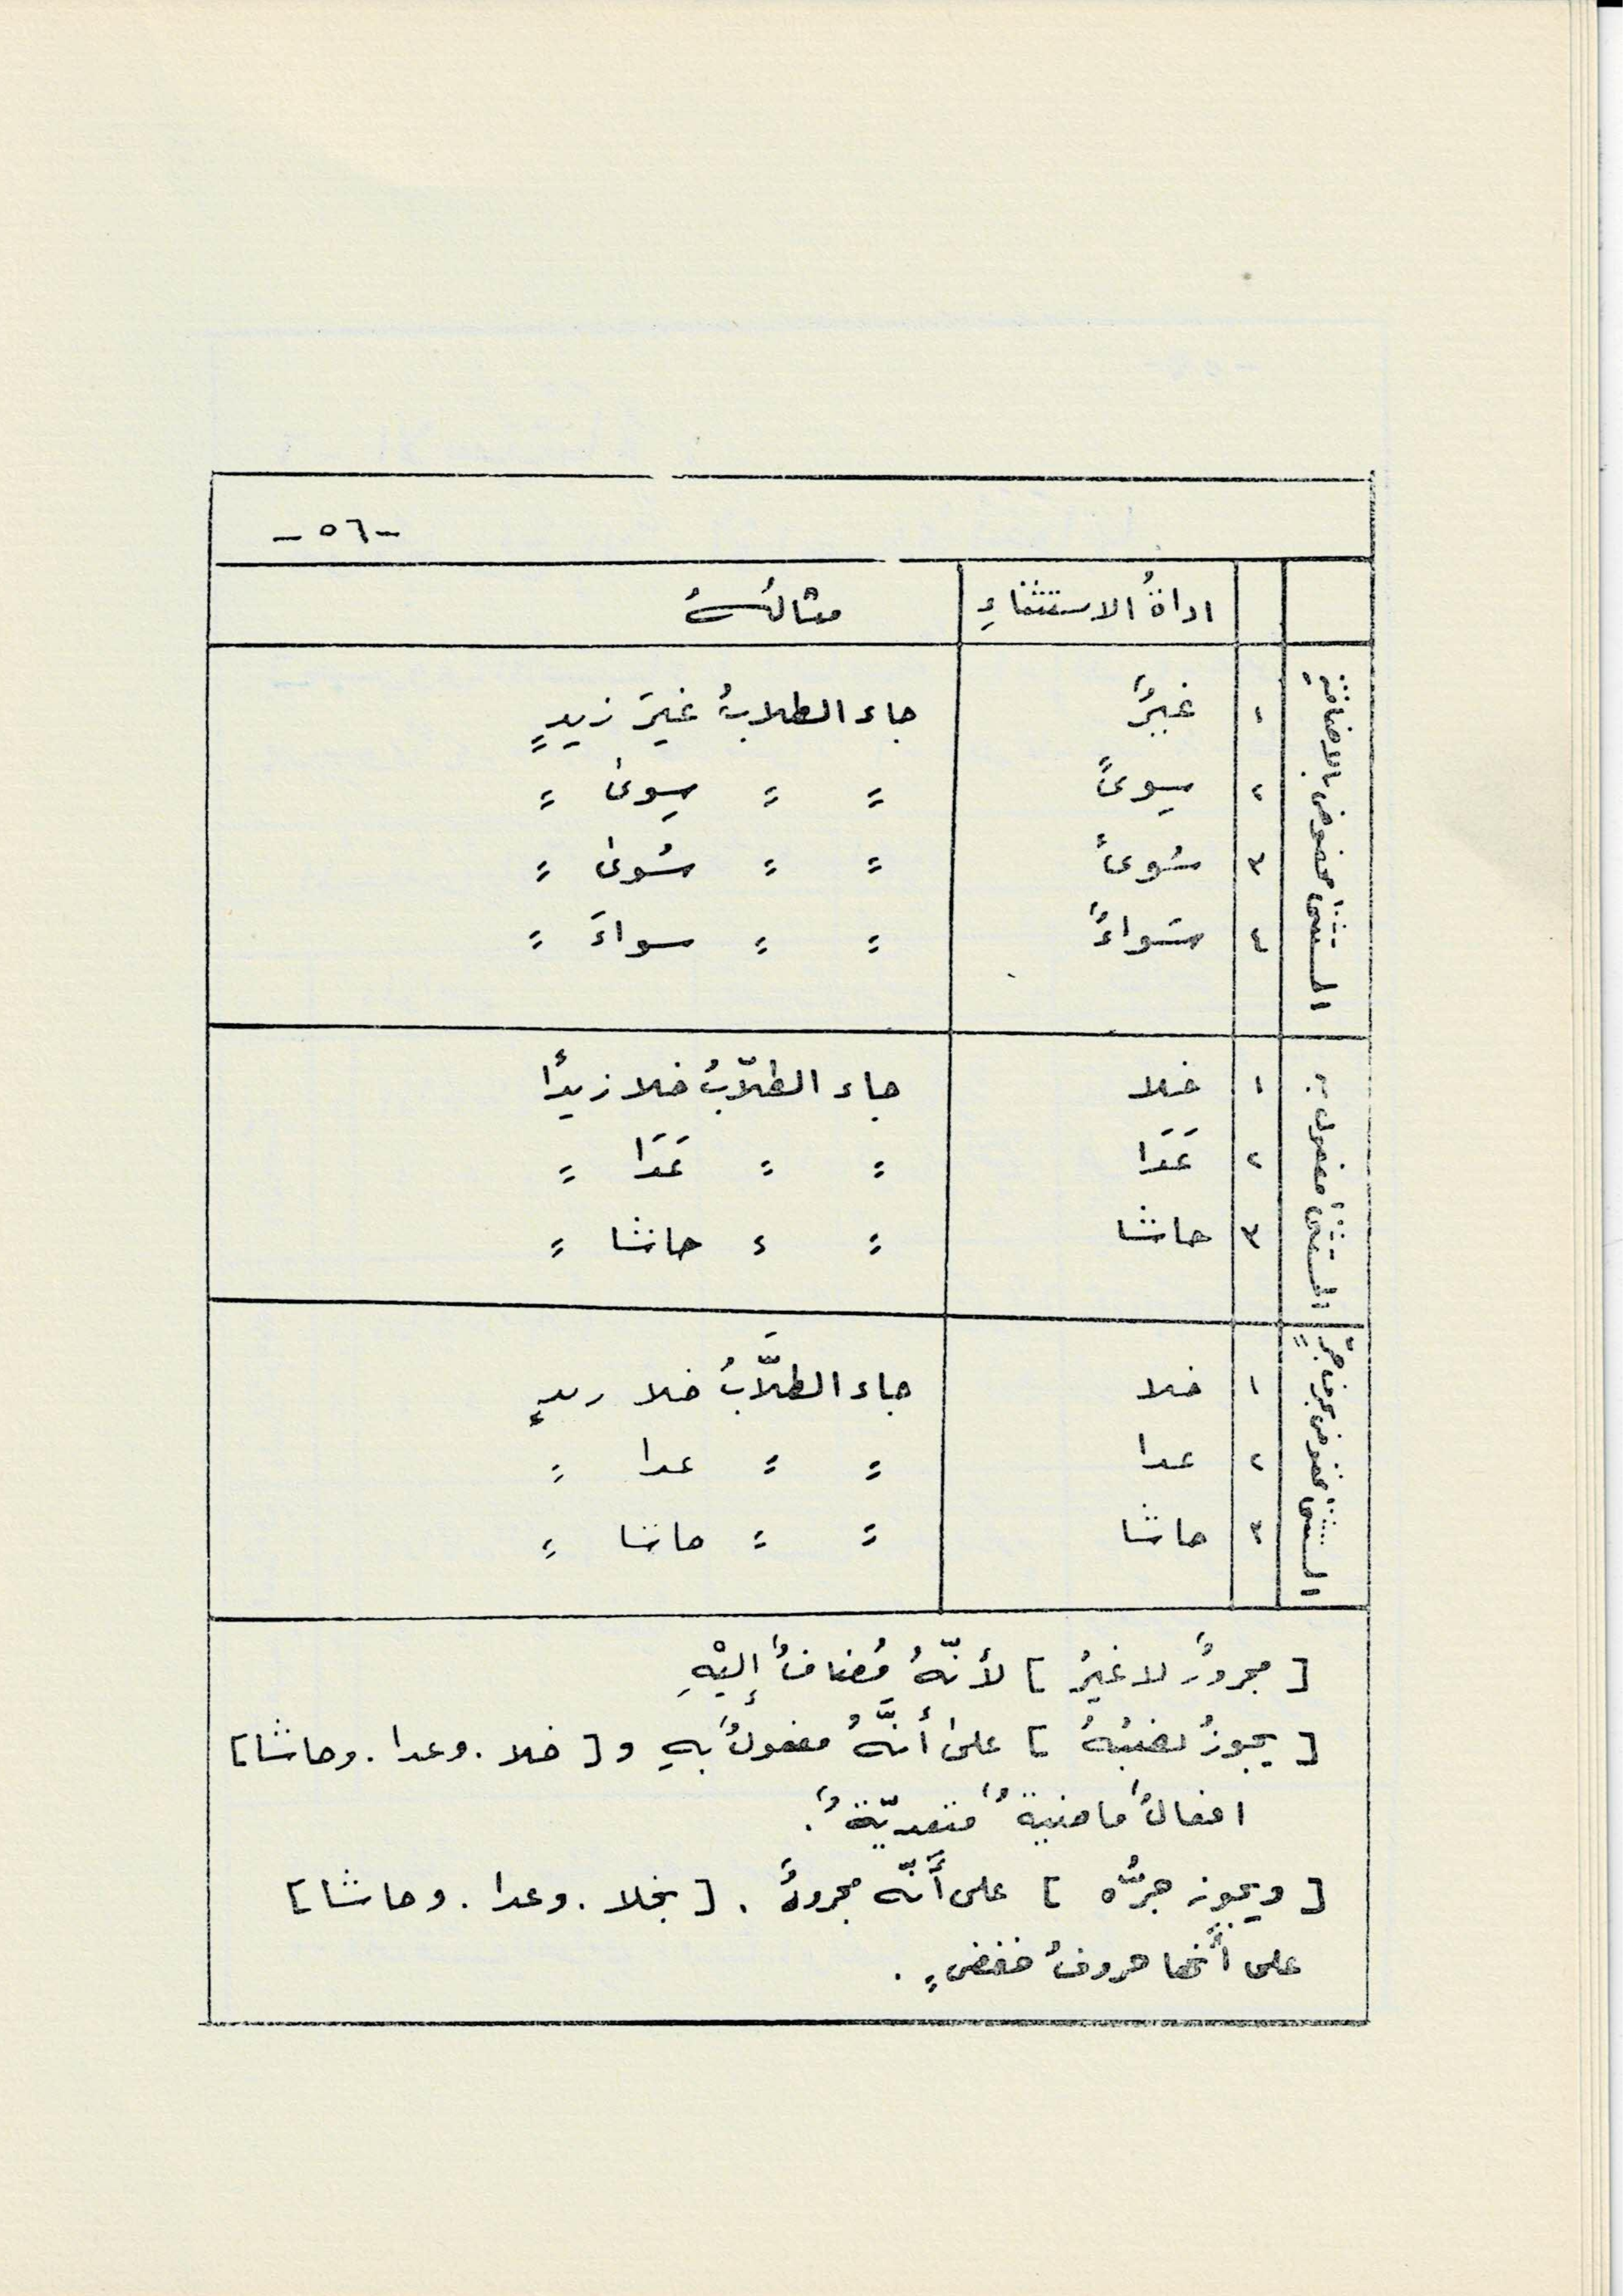 -٥٦-
اداةُ الاستثناءِ مثالُـــهُ
المستثنى مخفوض بالاضافةِ
١ غيرٌ جاء الطلابُ غيرَ زيدٍ
٢ سِوىً = = سِوىٰ =
٣ سُوىً = = سُوىٰ =
٤ سَواءٌ = = سواءَ =
المستثنى مفعول به
١ خلا جاء الطلّابُ خلا زيدًا
٢ عَدَا = = عَدَا =
٣ حاشا = = حاشا =
المستثنى مخفوض بحرف جرٍّ
١ خلا جاء الطلَّابُ خلا زيدٍ
٢ عدا = = عدا =
٣ حاشا = = حاشا =
[ مجرورٌ لا غيرُ ] لأنّهُ مُضافٌ إليْهِ
[ يجوزُ نصْبُهُ ] علىٰ أنَّهُ مفعولٌ بهِ و [ خلا . وعدا . وحاشا ]
افعالٌ ماضيةٌ متعدّيةٌ .
[ ويجوز جرُّه ] على أنّه مجرورٌ . [ بخلا . وعدا . وحاشا ]
على أنّها حروفُ خفضٍ .